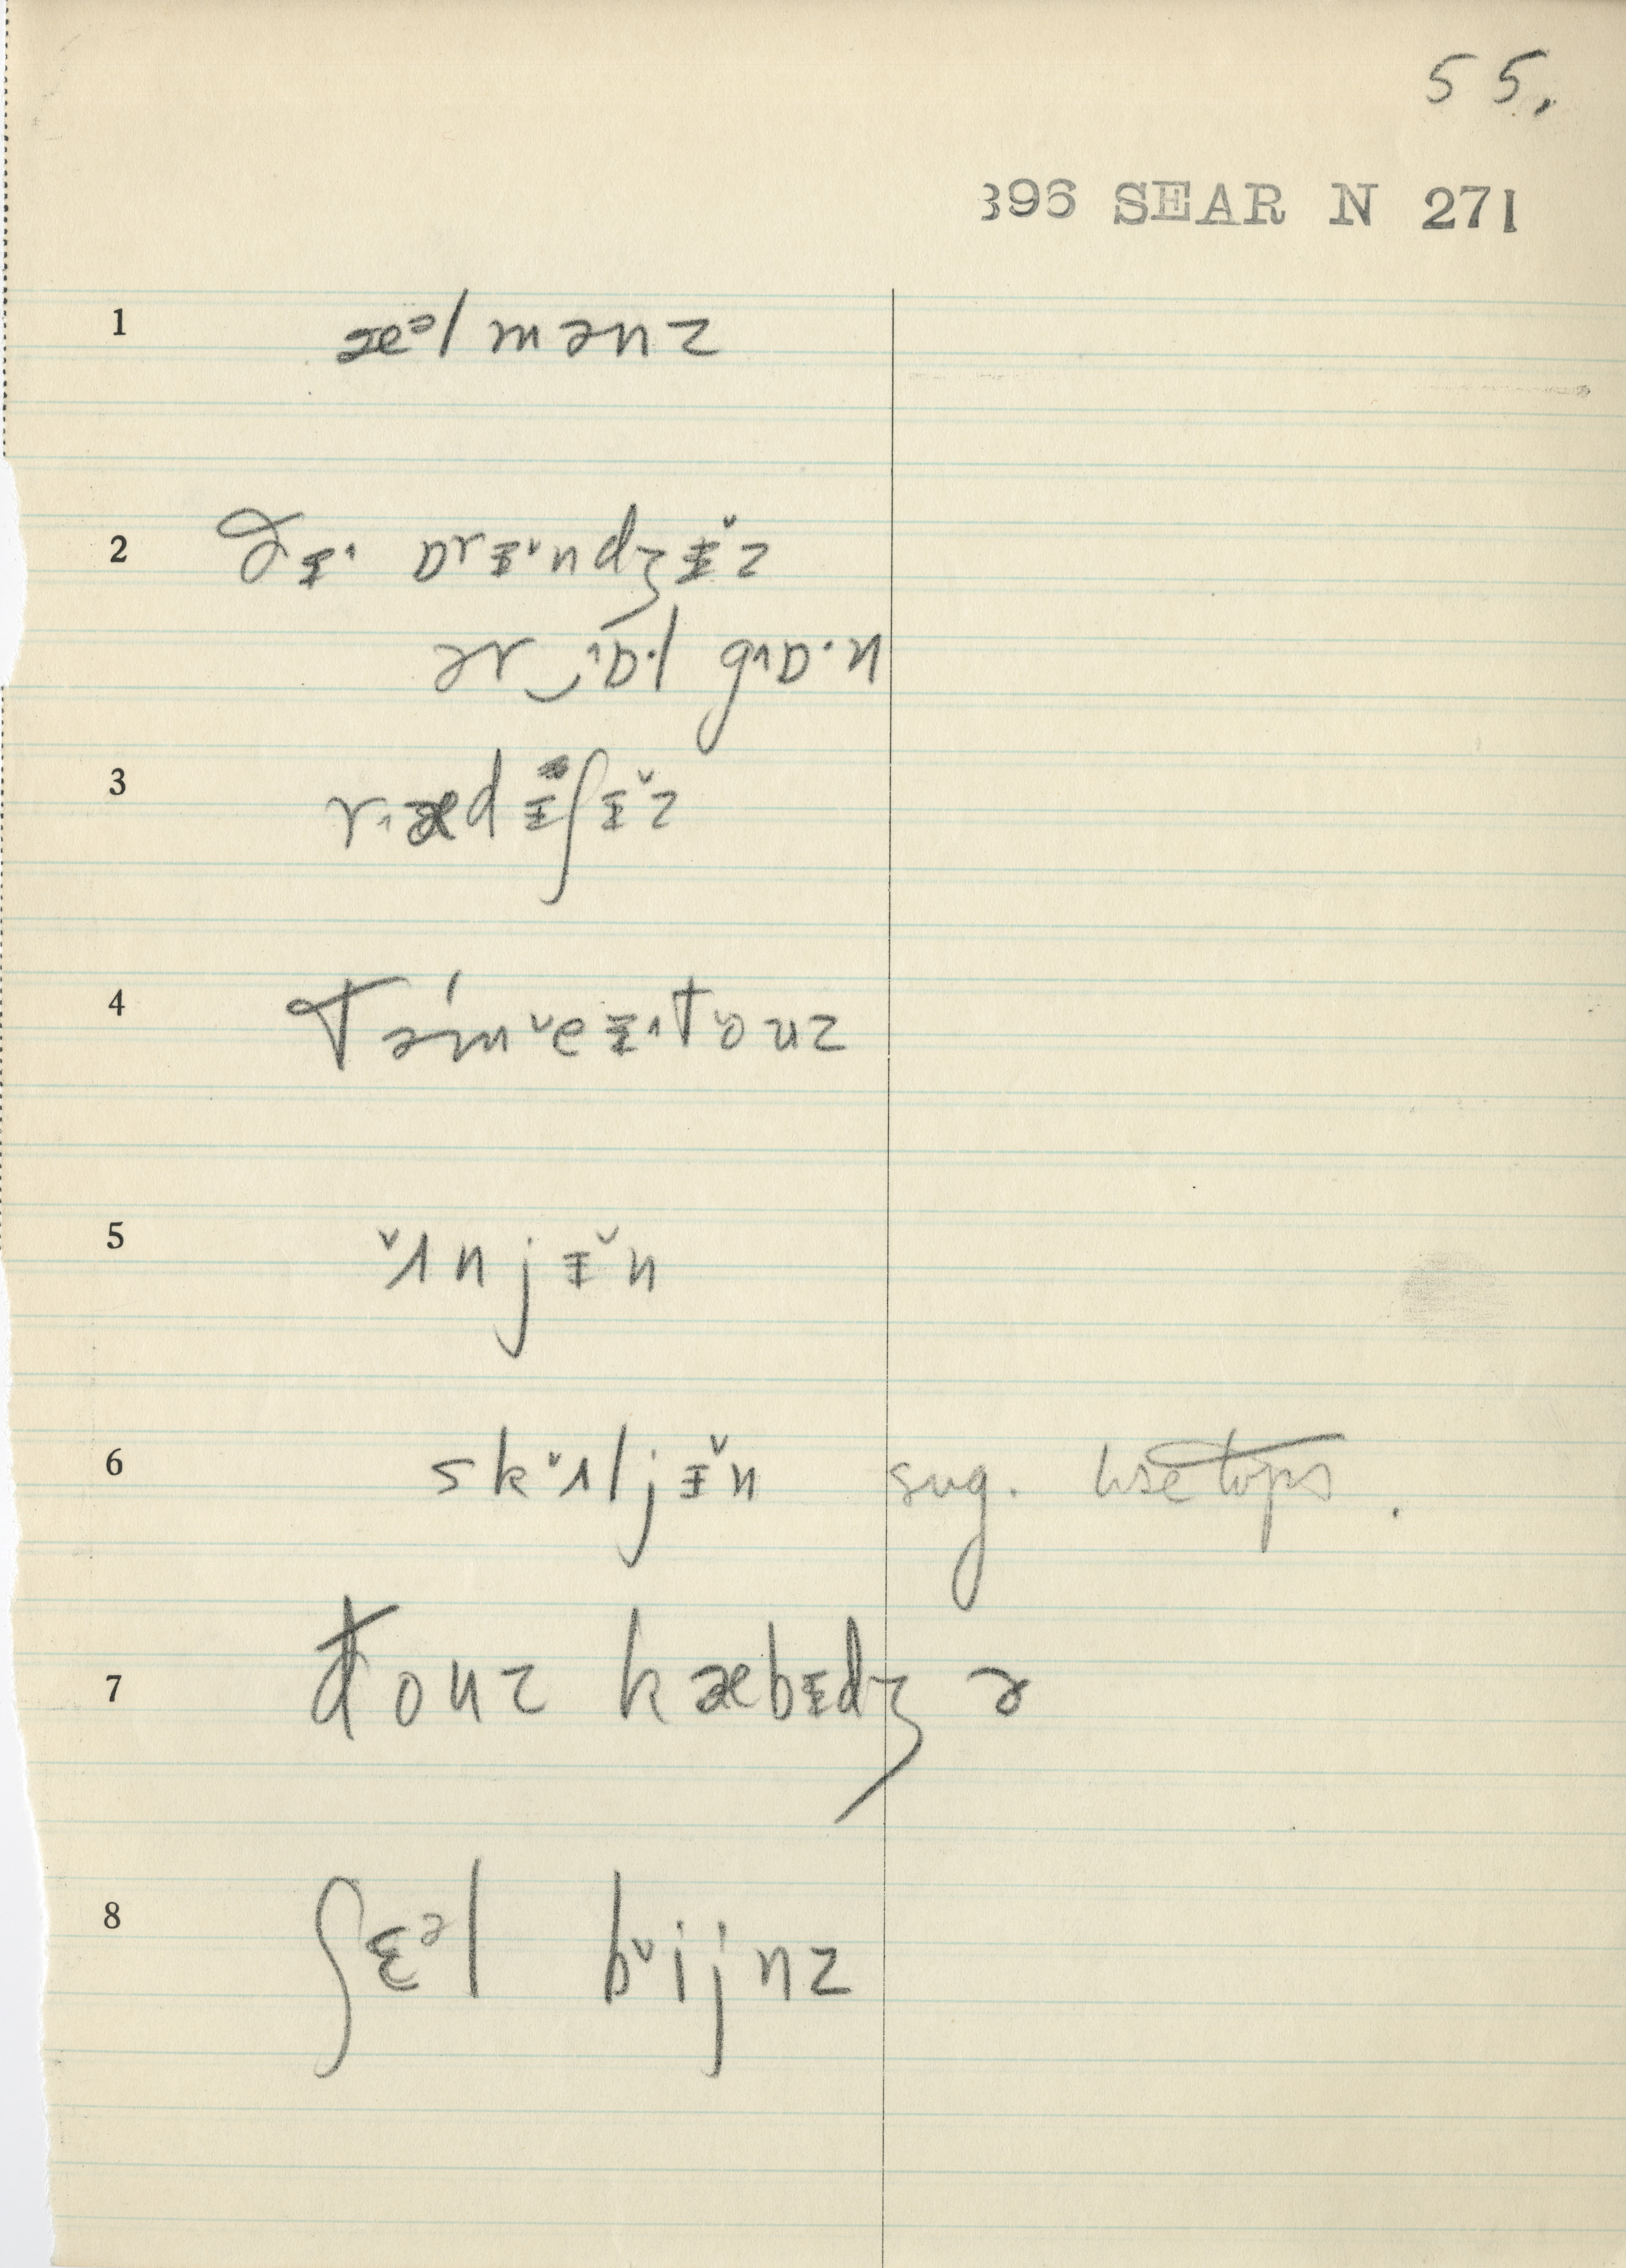 55.
396 SEAR N 271
1 æᵊlmənz
2 ðɪ˄ ɒrɪ˅ndʒɪ̌z
ər‿˄ɒ·l g˄ɒ·n
3 r˄ædɪʃɪ̌z
4 təm˅eɪ˄t˅ouz
5 ˅ʌnjɪ̌n
6 sk˅ʌljɪ̌n sug.
7 ðouz kæbɪdʒ ə
8 ʃɛᵊl b˅ijnz